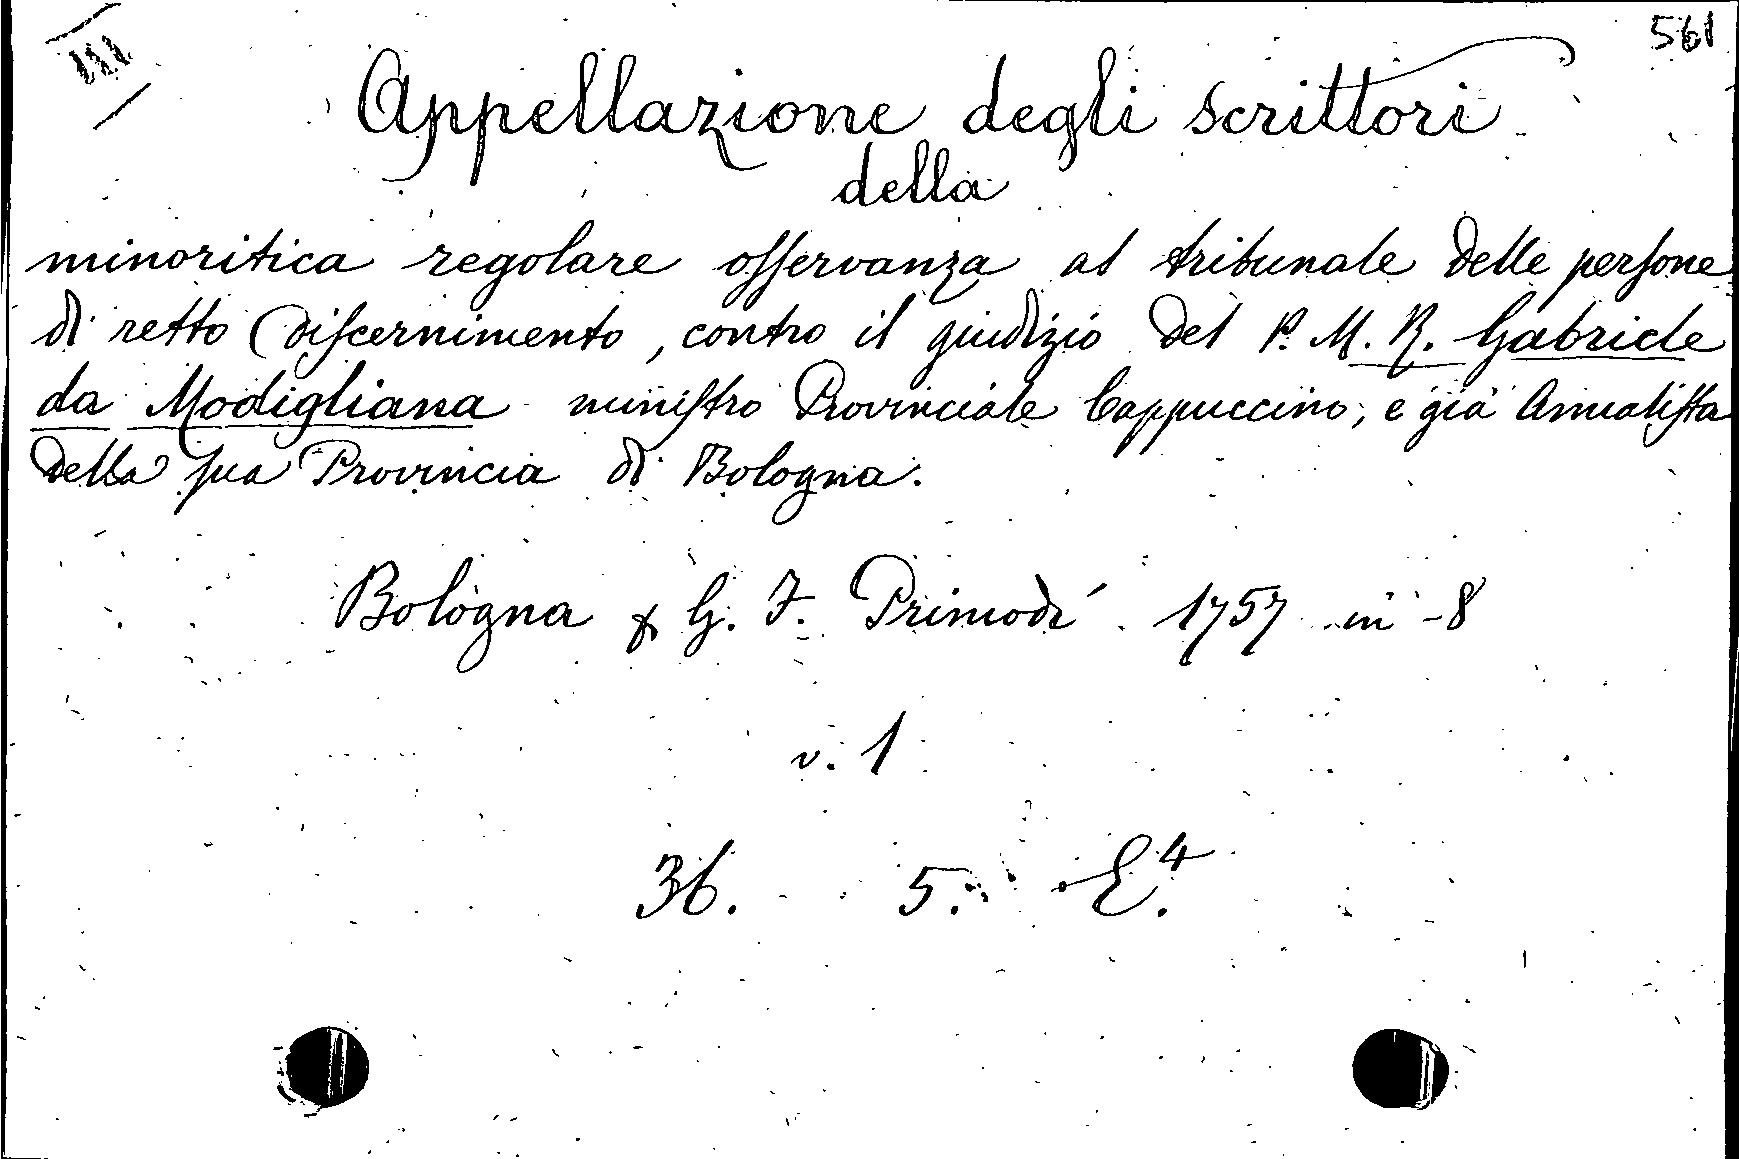 561
III
Appellazione degli scrittori
della
minoritica regolare osservanza al tribunale delle persone
di retto discernimento, contro il giudizio del P. M. R. Gabriele
da Modigliana ministro Provinciale Cappuccino, e già Annalista
della sua Provincia di Bologna.
Bologna x G. F. Primodì 1757 in -8
v. 1
36. 5. E.4